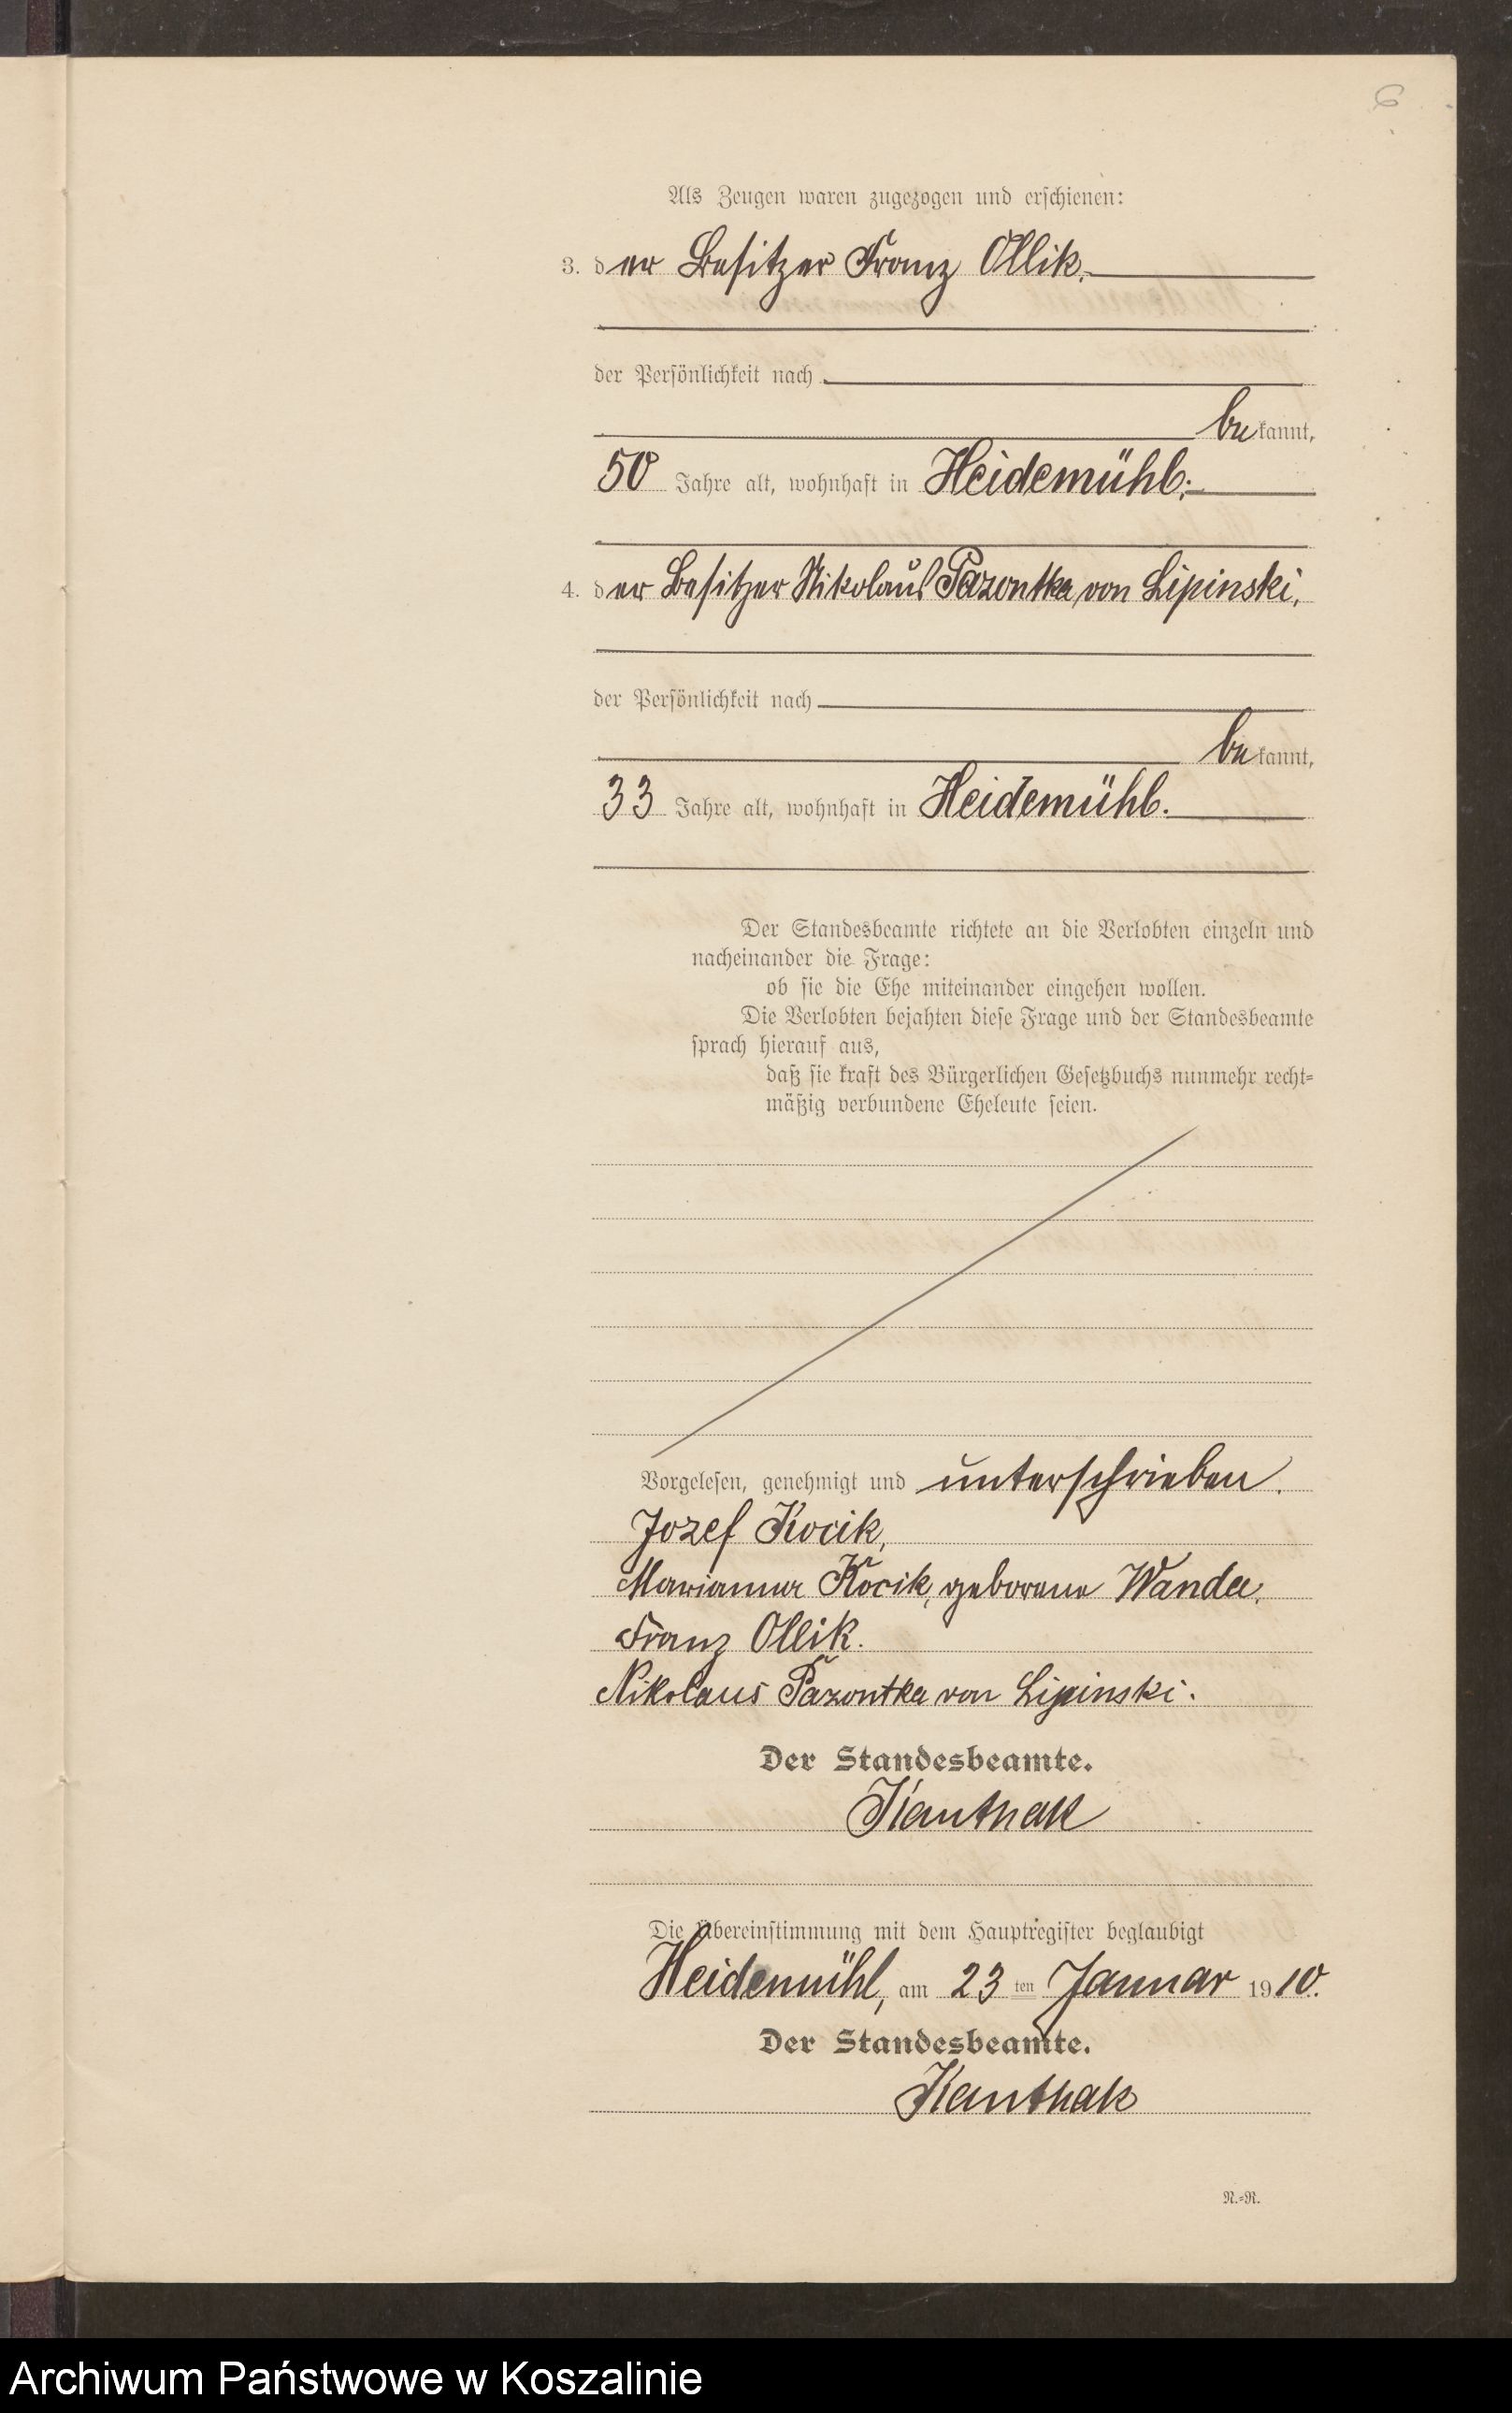 6
Als Zeugen waren zugezogen und erschienen:
3. der Besitzer Franz Ollik,
der Persönlichkeit nach
bekannt,
50 Jahre alt, wohnhaft in Heidemühl;
4. der Besitzer Nikolaus Pazontka von Lipinski,
der Persönlichkeit nach
bekannt,
33 Jahre alt, wohnhaft in Heidemühl.
Der Standesbeamte richtete an die Verlobten einzeln und
nacheinander die Frage:
ob sie die Ehe miteinander eingehen wollen.
Die Verlobten bejahten diese Frage und der Standesbeamte
sprach hierauf aus,
daß sie kraft des Bürgerlichen Gesetzbuchs nunmehr recht=
mäßig verbundene Eheleute seien.
Vorgelesen, genehmigt und unterschrieben.
Jozef Kocik,
Marianna Kocik, geborene Wanda,
Franz Ollik.
Nikolaus Pazontka von Lipinski.
Der Standesbeamte.
Kanthak
Die Übereinstimmung mit dem Hauptregister beglaubigt
Heidemühl, am 23 ten Januar 1910.
Der Standesbeamte.
Kanthak
N.=R.
Archiwum Państwowe w Koszalinie